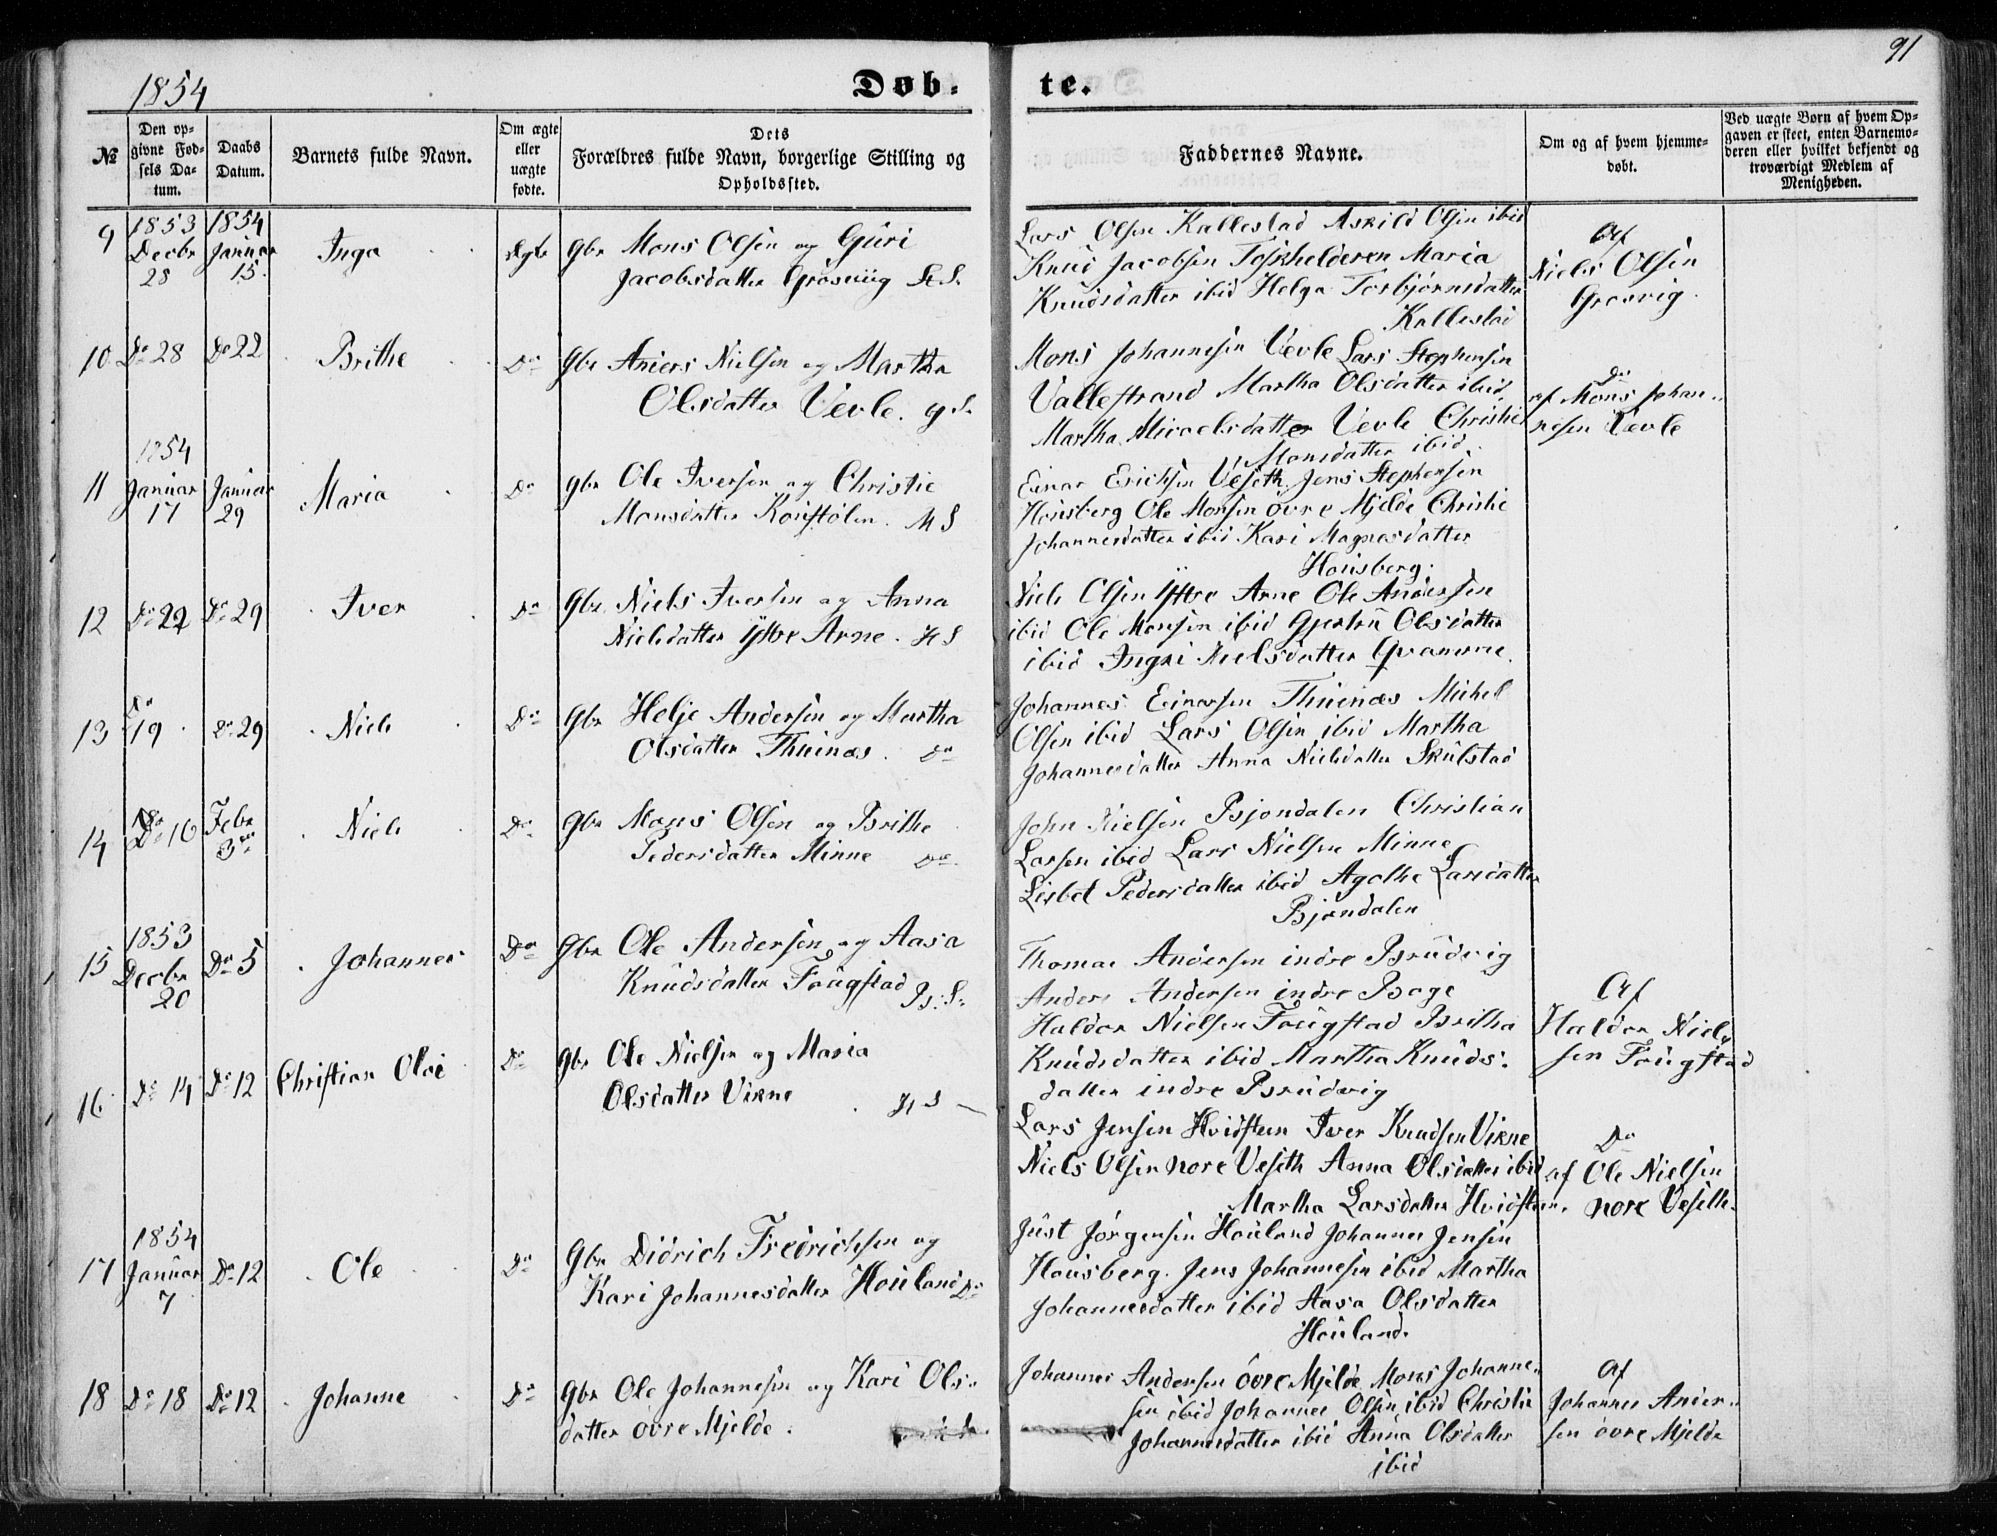 91
1854
Døb-
te.
№
Den op-
givne Fød-
sels Da-
tum.
Daabs
Datum.
Barnets fulde Navn.
Om ægte
eller
uægte
fødte.
Dets
Forældres fulde Navn, borgerlige Stilling og
Opholdssted.
Faddernes Navne.
Om og af hvem hjemme-
døbt.
Ved uægte Børn af hvem Op-
gaven er skeet, enten Barnemo-
deren eller hvilket bekjendt og
troværdigt Medlem af
Menigheden.
9
1853
Decbr
28
1854
Januar
15.
Inga
Ægte
Gbr Mons Olsen og Guri
Jacobsdatter Grøsviig
Lars Olsen Kallestad Askild Olsen ibid
Knud Jacobsen Toskhelderen Maria
Knudsdatter ibid Helga Torbjørnsdatter
Kallestad
Af
Niels Olsen
Grøsvig.
10
Do 28
Do 22
Brithe
Do
Gbr Anders Nielsen og Martha
Olsdatter Vevle. G. S.
Mons Johannesen Vevle Lars Stephensen
Vallestrand Martha Olsdatter ibid
Martha Micaelsdatter Vevle Christie
Monsdatter ibid.
Do
af Mons Johan-
nesen Vevle
11
1854
Januar
17
Januar
29
Maria
Do
Gbr Ole Iversen og Christie
Monsdatter H S
Einar Erichsen Veseth Jens Stephensen
Housberg Ole Monsen øvre Mjelde Christie
Johannesdatter ibid Kari Magnesdatter
Housberg.
12
Do 22
Do 29
Iver
Do
Gbr Niels Iversen og Anna
Nielsdatter Yttre Arne. H S
Niels Olsen Yttre Arne Ole Andersen
ibid Ole Monsen ibid Gjertru Olsdatter
ibid Ingri Nielsdatter Qvamme.
13
Do
19
Do 29
Niels
Do
Gbr Helje Andersen og Martha
Olsdatter Thuenæs. Do
Johannes Einarsen Thuenæs Michel
Olsen ibid Lars Olsen ibid Martha
Johannesdatter Anna Nielsdatter Skulstad
14
Do 16
Febr
3
Niels
Do
Gbr Mons Olsen og Brithe
Pedersdatter Minne Do
John Nielsen Bjøndalen Christian
Larsen ibid Lars Nielsen Minne
Lisbet Pedersdatter ibid Agathe Larsdatter
Bjøndalen
15
1853
Decbr
20
Do 5
Johannes
Do
Gbr Ole Andersen og Aasa
Knudsdatter Fougstad B. S.
Thomas Andersen indre Brudvig
Anders Andersen indre Boge
Haldor Nielsen Fougstad Britha
Knudsdatter ibid Martha Knuds-
datter indre Brudvig
Af
Haldor Niel-
sen Fougstad
16
Do 14
Do 12
Christian Olai
Do
Gbr Ole Nielsen og Maria
Olsdatter Virne H S
Lars Jensen Hvidsteen Iver Knudsen Virne
Niels Olsen nore Veseth Anna Olsdatter ibid
Martha Larsdatter Hvidsteen.
Do
af Ole Nielsen
nore Veseth.
17
1854
Januar
7
Do 12
Ole
Do
Gbr Didrich Fredrichsen og
Kari Johannesdatter Houland Do
Just Jørgensen Houland Johannes Jensen
Housberg. Jens Johannesen ibid Martha
Johannesdatter ibid Aasa Olsdatter
Houland.
18
Do 18
Do 12
Johanne
Do
Gbr Ole Johannesen og Kari Ols-
datter øvre Mjelde.
Johannes Andersen øvre Mjelde Mons Johanne-
sen ibid Johannes Olsen ibid Christie
Johannesdatter ibid Anna Olsdatter
ibid
Af
Johannes Ander-
sen øvre Mjelde